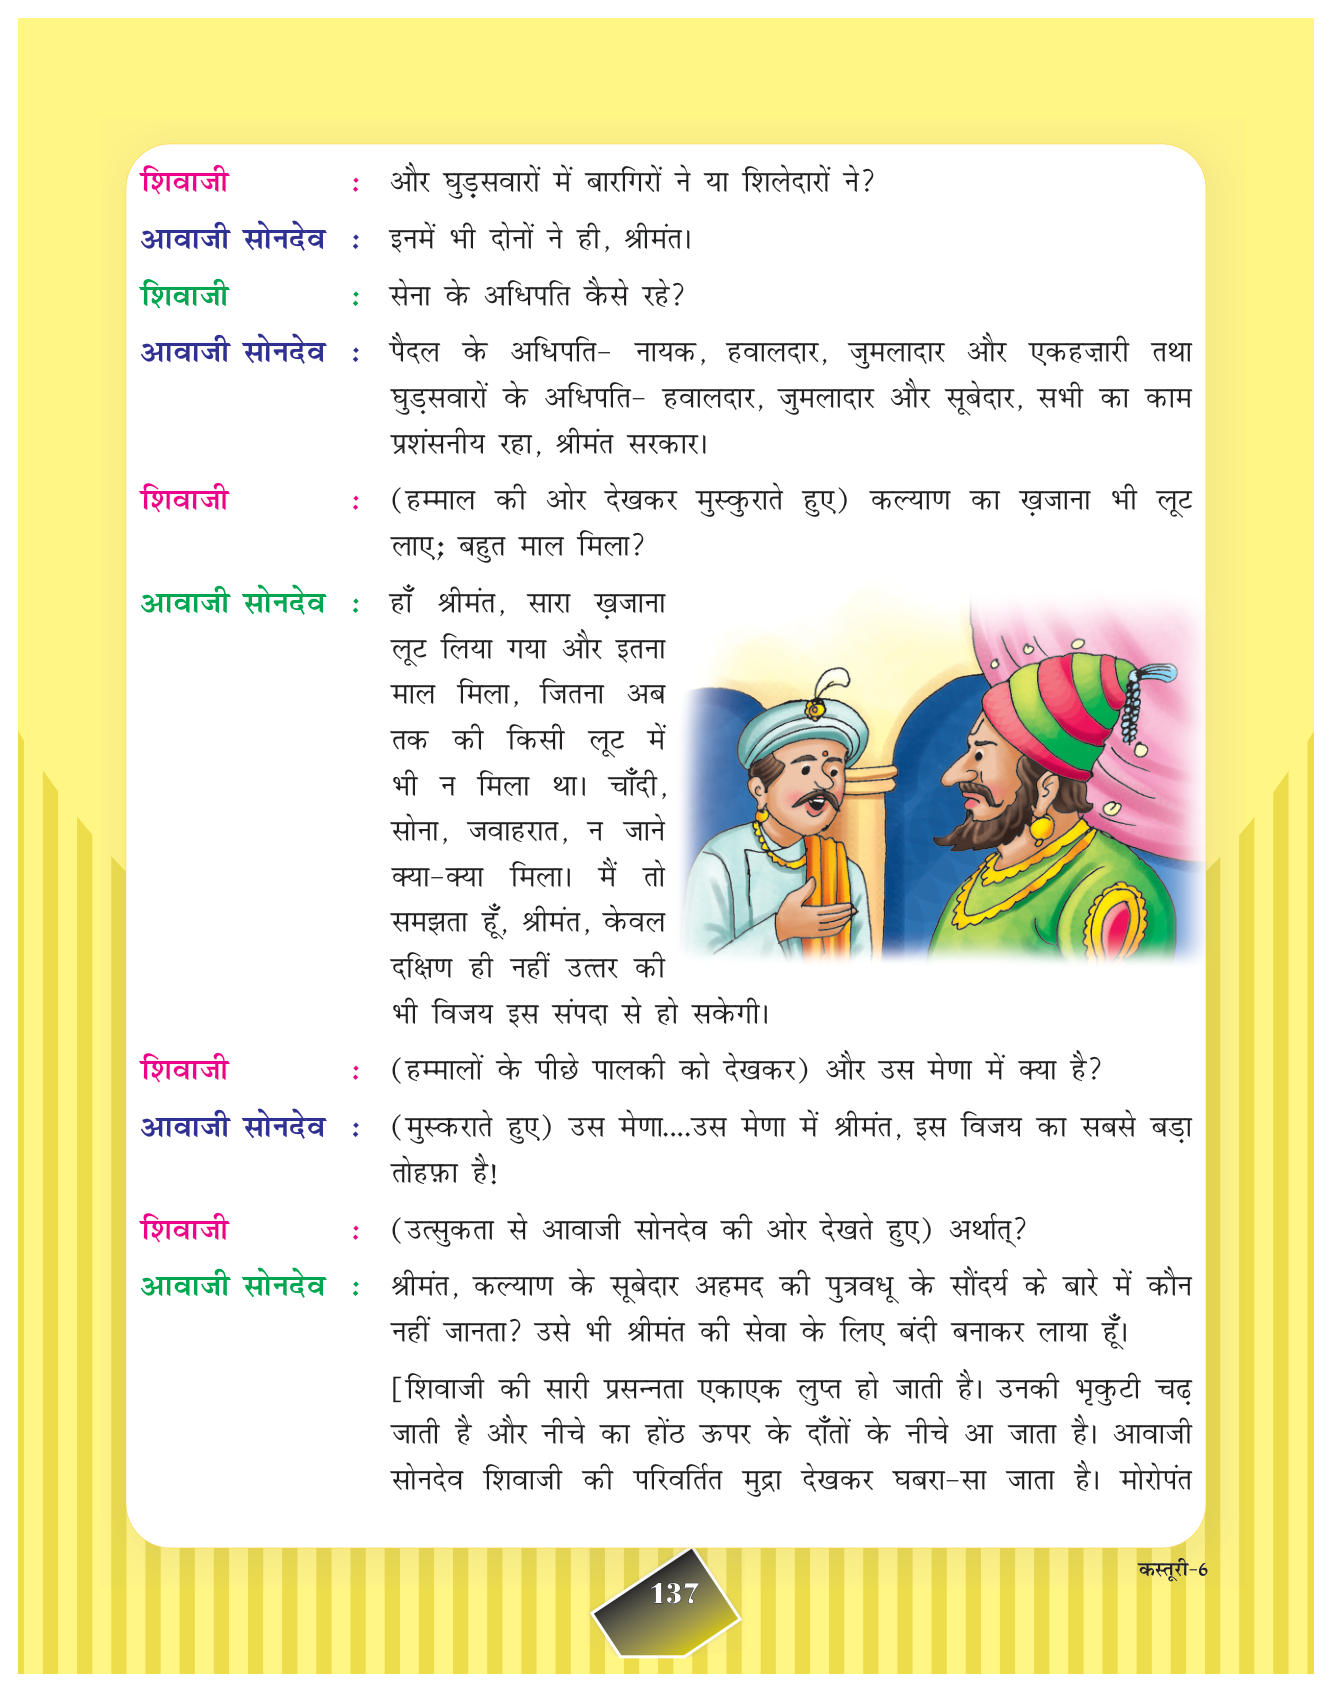 शिवाजी : और घुड़सवारों में बारगिरों ने या शिलेदारों ने?
आवाजी सोनदेव : इनमें भी दोनों ने ही, श्रीमंत।
शिवाजी : सेना के अधिपति कैसे रहे?
आवाजी सोनदेव : पैदल के अधिपति– नायक, हवालदार, जुमलादार और एकहज़ारी तथा
घुड़सवारों के अधिपति– हवालदार, जुमलादार और सूबेदार, सभी का काम
प्रशंसनीय रहा, श्रीमंत सरकार।
शिवाजी : (हम्माल की ओर देखकर मुस्कुराते हुए) कल्याण का ख़जाना भी लूट
लाए; बहुत माल मिला?
आवाजी सोनदेव : हाँ श्रीमंत, सारा ख़जाना
लूट लिया गया और इतना
माल मिला, जितना अब
तक की किसी लूट में
भी न मिला था। चाँदी,
सोना, जवाहरात, न जाने
क्या–क्या मिला। मैं तो
समझता हूँ, श्रीमंत, केवल
दक्षिण ही नहीं उत्तर की
भी विजय इस संपदा से हो सकेगी।
शिवाजी : (हम्मालों के पीछे पालकी को देखकर) और उस मेणा में क्या है?
आवाजी सोनदेव : (मुस्कराते हुए) उस मेणा....उस मेणा में श्रीमंत, इस विजय का सबसे बड़ा
तोहफ़ा है!
शिवाजी : (उत्सुकता से आवाजी सोनदेव की ओर देखते हुए) अर्थात्?
आवाजी सोनदेव : श्रीमंत, कल्याण के सूबेदार अहमद की पुत्रवधू के सौंदर्य के बारे में कौन
नहीं जानता? उसे भी श्रीमंत की सेवा के लिए बंदी बनाकर लाया हूँ।
[शिवाजी की सारी प्रसन्नता एकाएक लुप्त हो जाती है। उनकी भृकुटी चढ़
जाती है और नीचे का होंठ ऊपर के दाँतों के नीचे आ जाता है। आवाजी
सोनदेव शिवाजी की परिवर्तित मुद्रा देखकर घबरा–सा जाता है। मोरोपंत
कस्तूरी–6
137